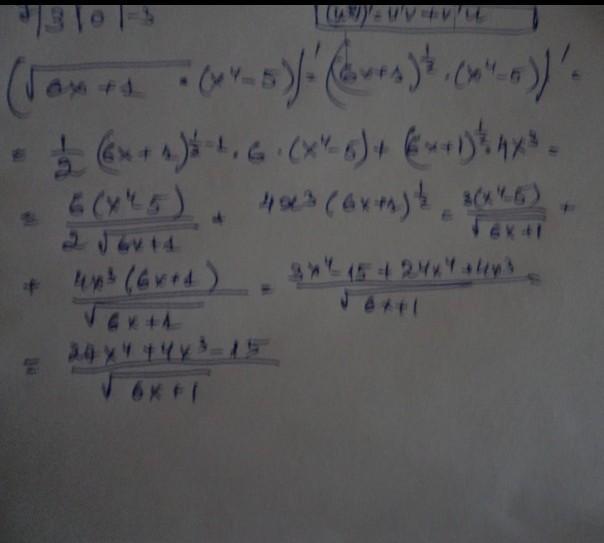 |3|0|=3
(uv)'=u'v+v'u
(√(6x+1) · (x⁴-5))' = ((6x+1)^(1/2) · (x⁴-5))' =
= 1/2 (6x+1)^(1/2-1) · 6 · (x⁴-5) + (6x+1)^(1/2) · 4x³ =
= 6(x⁴-5)/(2√(6x+1)) + 4x³(6x+1)^(1/2) = 3(x⁴-5)/√(6x+1) +
+ 4x³(6x+1)/√(6x+1) = (3x⁴-15+24x⁴+4x³)/√(6x+1) =
= (27x⁴+4x³-15)/√(6x+1)